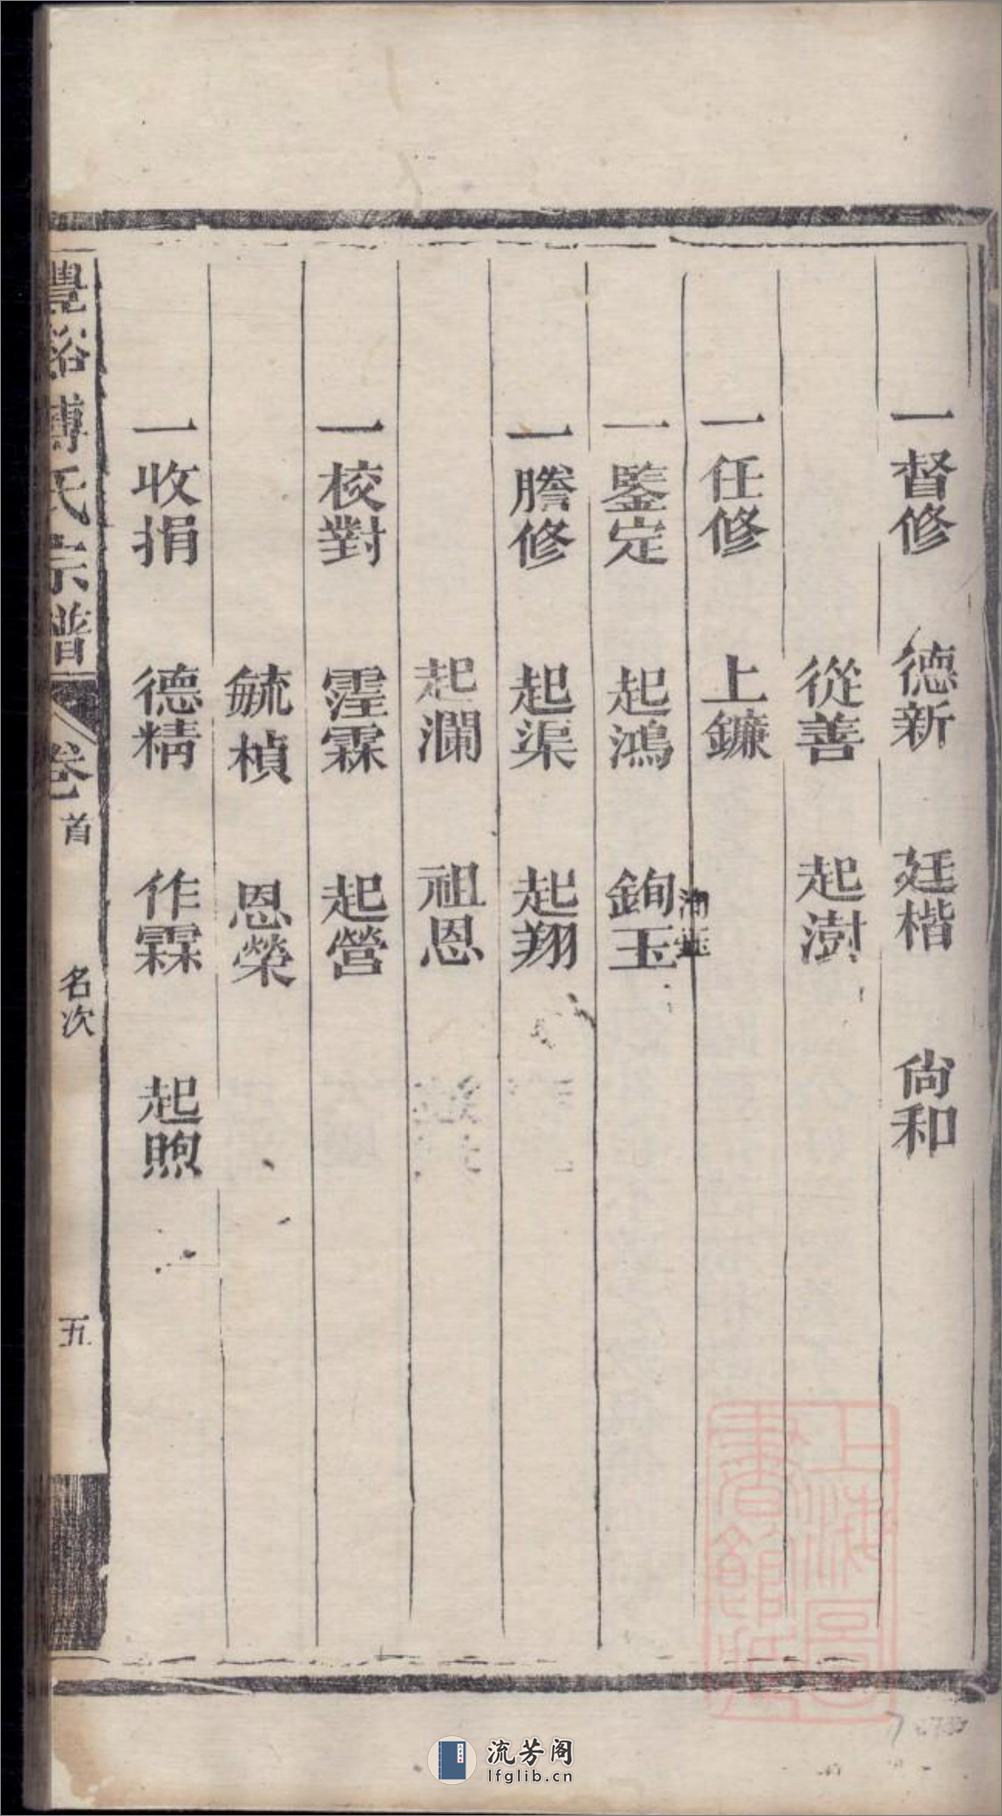 一督修 德新 廷楷 尙和
從善 起澍
一任修 上鐮
一鑒定 起鴻 銁玉
一謄修 起渠 起翔
起瀾 祖恩
一校對 霔霖 起營
毓楨 恩榮
一收捐 德精 作霖 起煦
豊裕傅氏宗譜 卷首 名次 五
上海圖書館藏
流芳阁
lfglib.cn